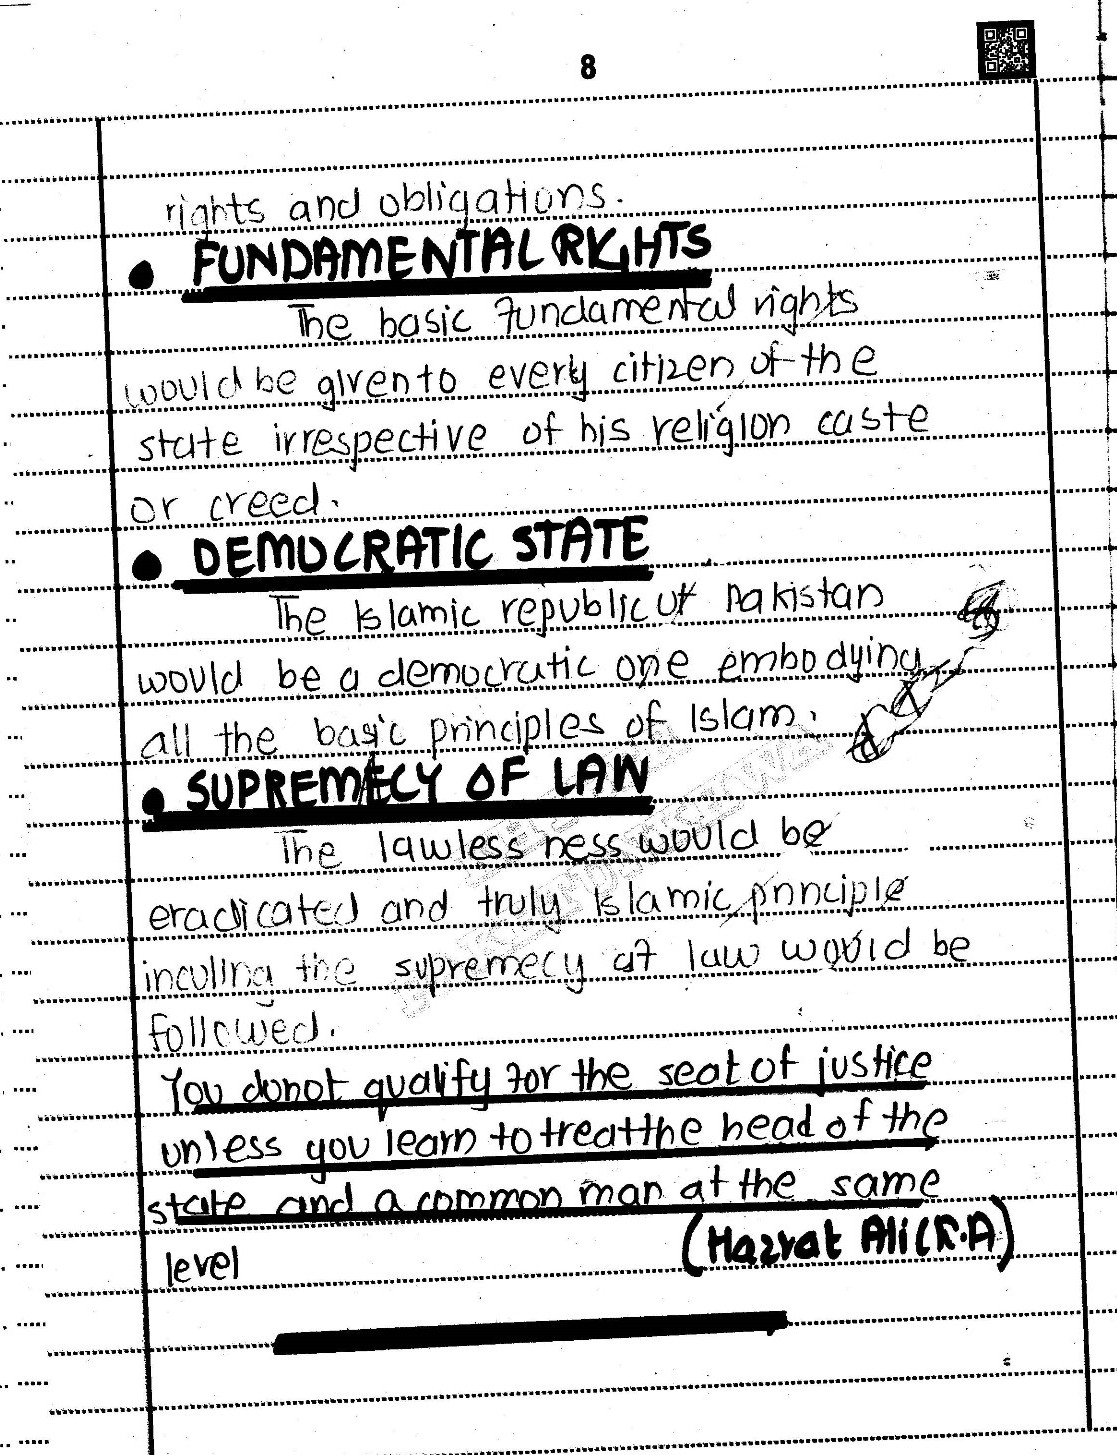 8
rights and obligations.
• FUNDAMENTAL RIGHTS
The basic fundamental rights
would be given to every citizen of the
state irrespective of his religion caste
or creed.
• DEMOCRATIC STATE
The Islamic republic of Pakistan
would be a democratic one embodying
all the basic principles of Islam.
• SUPREMECY OF LAW
The lawless ness would be
eradicated and truly Islamic principle
the supremecy of law would be
followed.
You donot qualify for the seat of justice
unless you learn to treat the head of the
state and a common man at the same
level (Hazrat Ali (R.A)